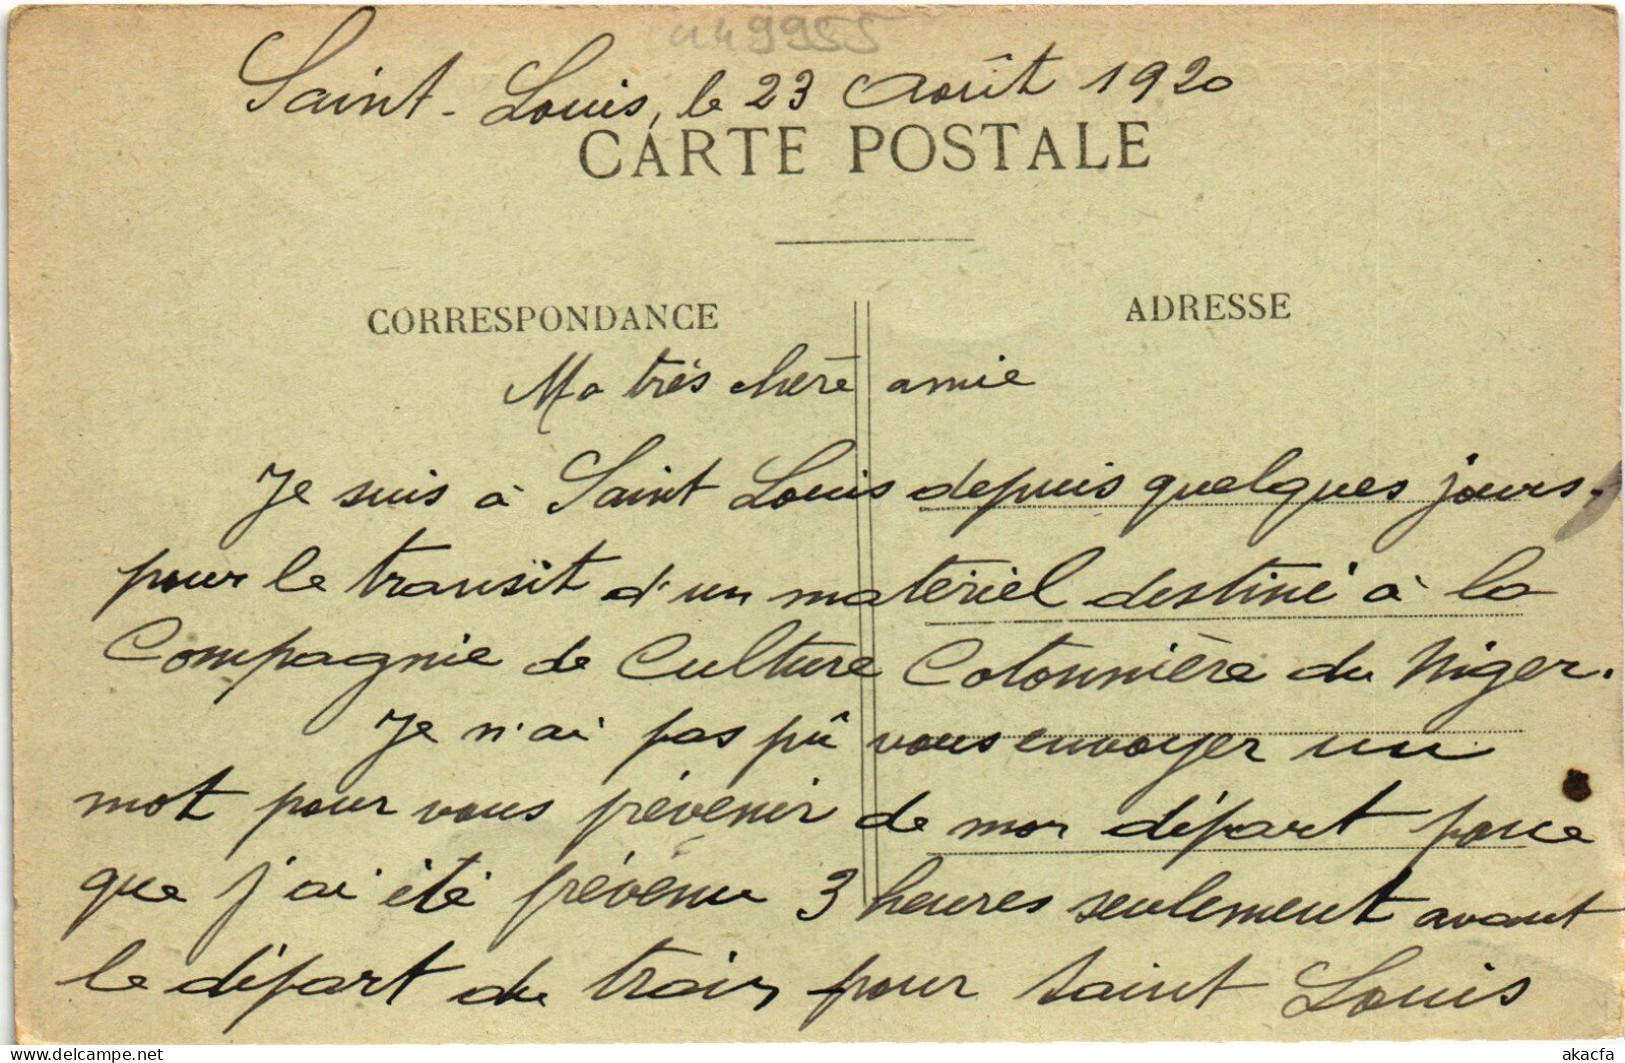 a49955
Saint-Louis, le 23 Août 1920
CARTE POSTALE
CORRESPONDANCE
ADRESSE
Ma très chère amie
Je suis à Saint Louis depuis quelques jours.
pour le transit d'un matériel destiné à la
Compagnie de Culture Cotonnière du Niger.
Je n'ai pas pû vous envoyer un
mot pour vous prévenir de mon départ parce
que j'ai été prévenu 3 heures seulement avant
le départ du train pour Saint Louis
www.delcampe.net
akacfa